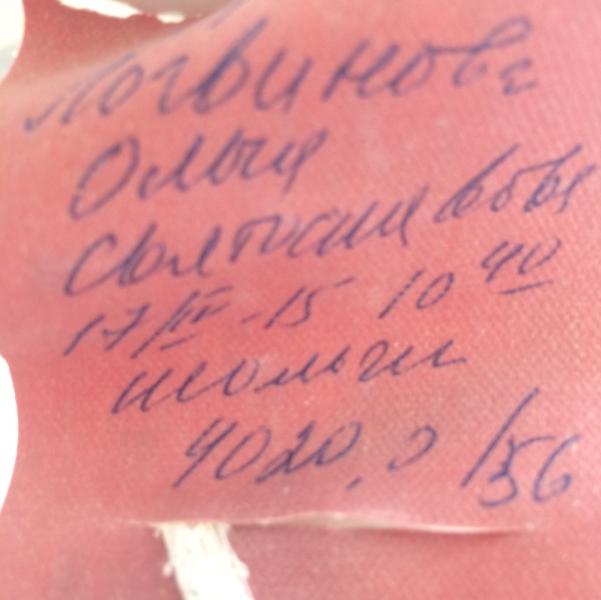 Логвинова
Ольга
Святославовна
17/IV-15 10 40
4020,0 /56